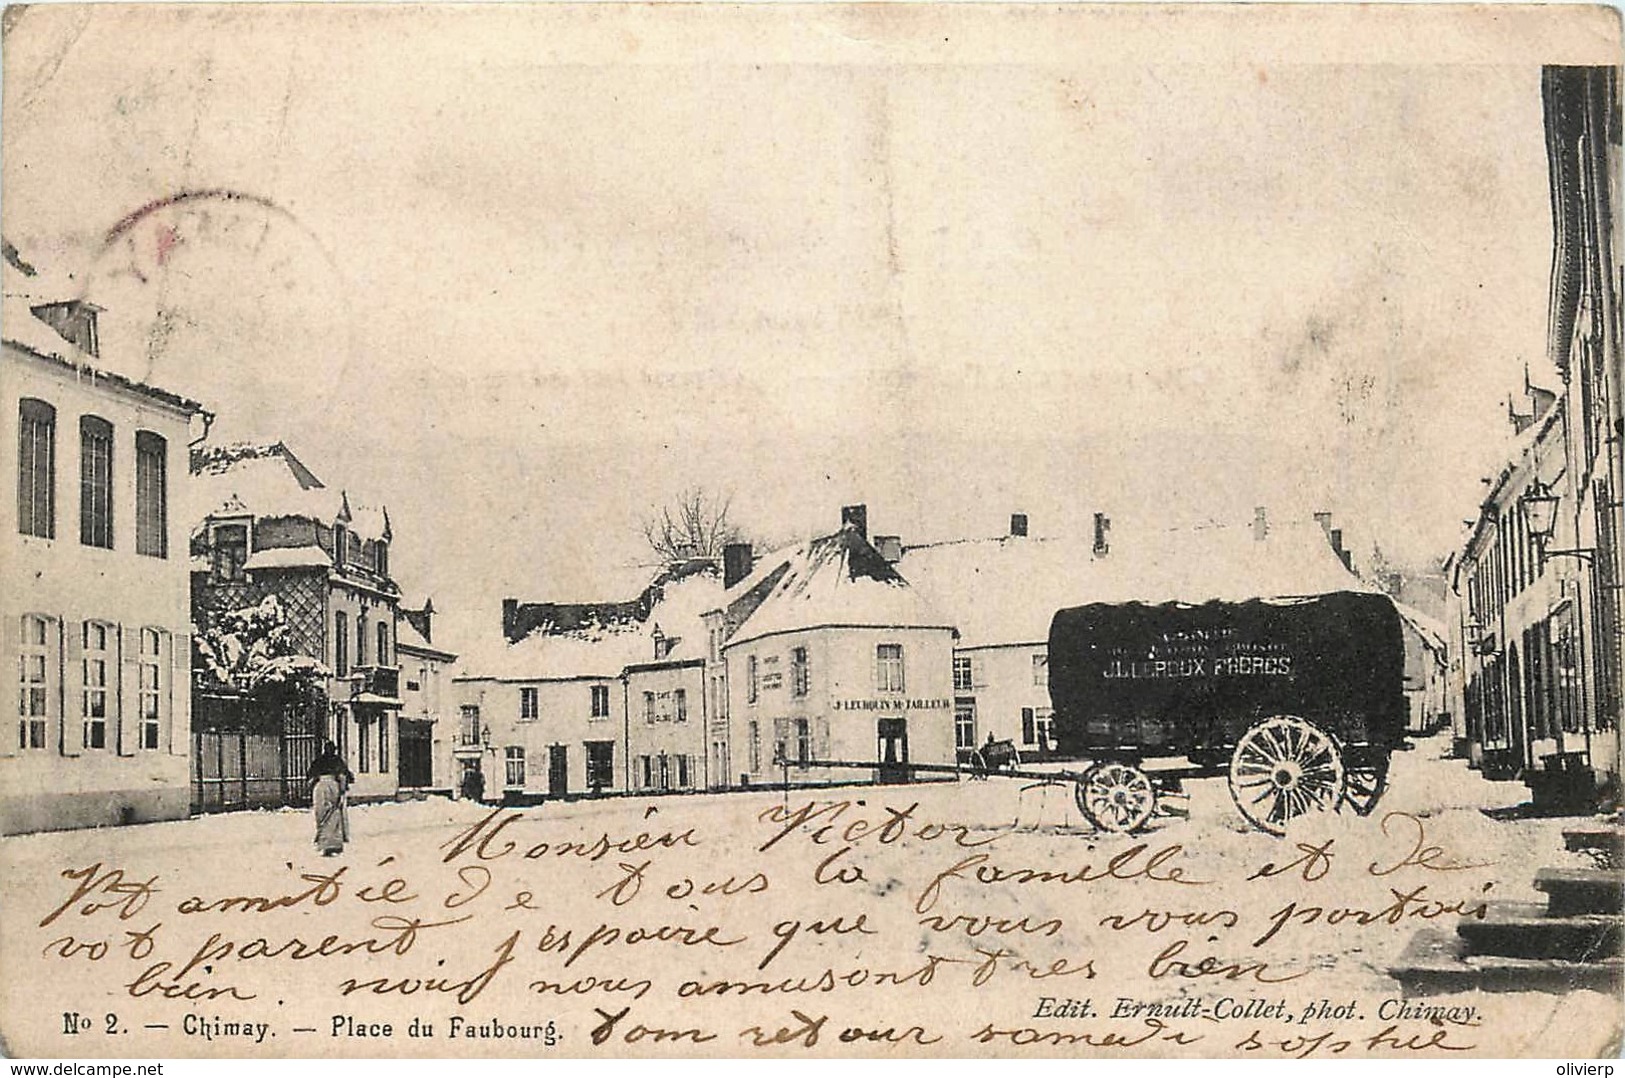 CAFÉ
J. LEROUX FRÈRES
Jh LEURQUIN Md TAILLEUR
Monsiéu Victor
Vot amitié de tous la famille et de
vot parent j'espoire que vous vous portais
bien. nous nous amusont tres bien
Edit. Ernult-Collet, phot. Chimay.
No 2. — Chimay. — Place du Faubourg.
tom retour samedi sophie
www.delcampe.net
olivierp